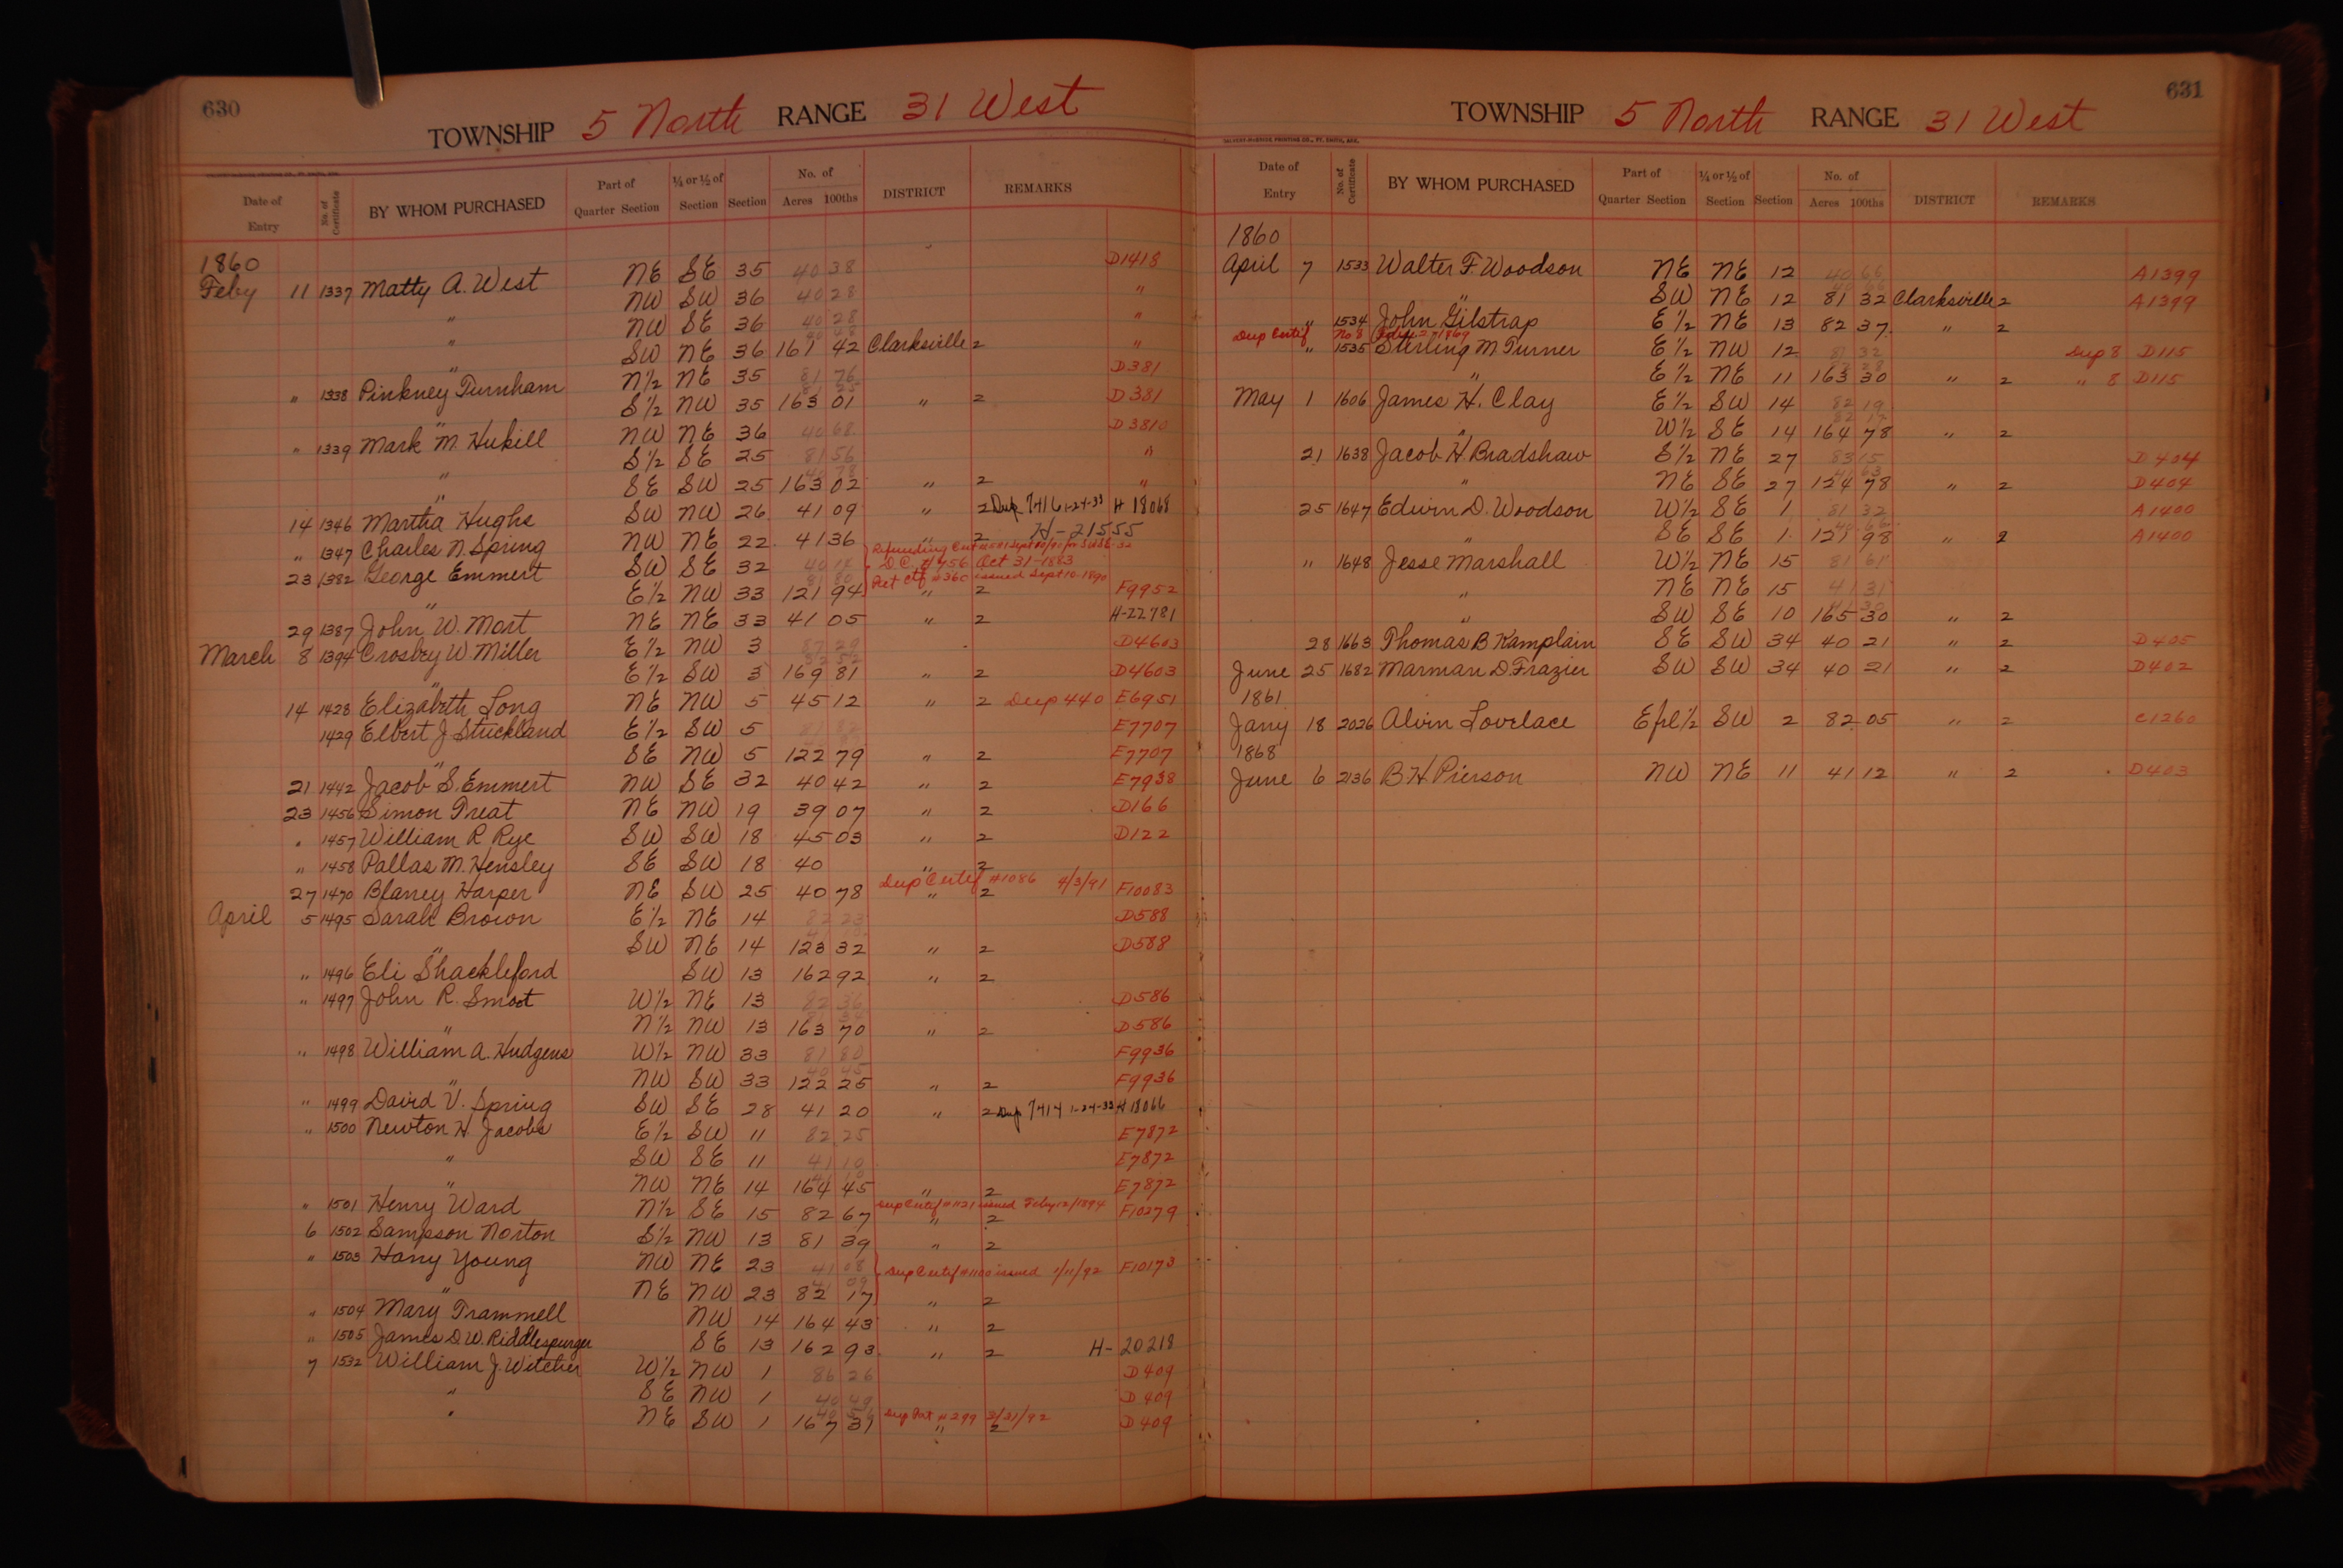 630
TOWNSHIP 5 North RANGE 31 West
Date of Entry No. of Certificate BY WHOM PURCHASED Part of Quarter Section ¼ or ½ of Section Section No. of Acres 100ths DISTRICT REMARKS
1860
Feby 11 1337 Matty A. West NE SE 35 40 38 D1418
" NW SW 36 40 28 "
" NW SE 36 40 28 "
" SW NE 36 161 42 Clarksville 2 "
" 1338 Pinkney Turnham N½ NE 35 81 76 D381
" S½ NW 35 163 01 " 2 D381
" 1339 Mark M. Hukill NW NE 36 40 68 D3810
" S½ SE 25 81 56 "
" SE SW 25 163 02 " 2 "
14 1346 Martha Hughs SW NW 26 41 09 " 2 Dup 7416 1-24-33 H 18068
" 1347 Charles N. Spring NW NE 22 41 36 " 2 H-21555
23 1382 George Emmert SW SE 32 40 14 D.C. #456 Oct 31-1883
" E½ NW 33 121 94 Pet Ctf #360 issued Sept 10-1890 " 2 F9952
29 1387 John W. Mort NE NE 33 41 05 " 2 H-22781
March 8 1394 Crosbey W Miller E½ NW 3 87 29 D4603
" E½ SW 3 169 81 " 2 D4603
14 1428 Elizabeth Long NE NW 5 45 12 " 2 Dup 440 E6951
1429 Elbert J Stuckland E½ SW 5 E7707
" SE NW 5 122 79 " 2 E7707
21 1442 Jacob S. Emmert NW SE 32 40 42 " 2 E7938
23 1456 Simon Treat NE NW 19 39 07 " 2 D166
" 1457 William R Rye SW SW 18 45 03 " 2 D122
" 1458 Pallas M. Hensley SE SW 18 40 " 2
27 1470 Blaney Harper NE SW 25 40 78 Dup Certif #1086 4/3/91 " 2 F10083
April 5 1495 Sarah Brown E½ NE 14 82 23 D588
" SW NE 14 123 32 " 2 D588
" 1496 Eli Shackleford SW 13 162 92 " 2
" 1497 John R. Smoot W½ NE 13 82 36 D586
" N½ NW 13 163 70 " 2 D586
" 1498 William A. Hudgens W½ NW 33 81 80 F9936
" NW SW 33 122 25 " 2 F9936
" 1499 David V. Spring SW SE 28 41 20 " 2 Dup 7414 1-24-33 H 18066
" 1500 Newton H. Jacobs E½ SW 11 82 25 E7872
" SW SE 11 41 10 E7872
" NW NE 14 164 45 " 2 E7872
" 1501 Henry Ward N½ SE 15 82 67 Dup Certif #1121 issued Feby 12/1894 " 2 F10279
6 1502 Sampson Norton S½ NW 13 81 39 " 2
" 1503 Harry Young NW NE 23 41 08 Dup Certif #1100 issued 1/11/92 F10173
" NE NW 23 82 17 " 2
" 1504 Mary Trammell NW 14 164 43 " 2
" 1505 James D.W. Riddlespurger SE 13 162 93 " 2 H-20218
7 1532 William J. Witcher W½ NW 1 86 26 D409
" SE NW 1 40 49 D409
" NE SW 1 167 31 Dup Pat #299 3/31/92 " 2 D409
631
TOWNSHIP 5 North RANGE 31 West
Date of Entry No. of Certificate BY WHOM PURCHASED Part of Quarter Section ¼ or ½ of Section Section No. of Acres 100ths DISTRICT REMARKS
1860
April 7 1533 Walter F. Woodson NE NE 12 40 66 A1399
" SW NE 12 81 32 Clarksville 2 A1399
" 1534 John Gilstrap E½ NE 13 82 37 " 2
Dup Certif No 8
" 1535 Sterling M Turner E½ NW 12 81 32 Dup 8 D115
" E½ NE 11 163 30 " 2 " 8 D115
May 1 1606 James H. Clay E½ SW 14 82 19
" W½ SE 14 164 78 " 2
21 1638 Jacob H Bradshaw S½ NE 27 83 15 D404
" NE SE 27 124 78 " 2 D404
25 1647 Edwin D. Woodson W½ SE 1 81 32 A1400
" SE SE 1 121 98 " 2 A1400
" 1648 Jesse Marshall W½ NE 15 81 61
" NE NE 15 41 31
" SW SE 10 165 30 " 2
28 1663 Thomas B Kamplain SE SW 34 40 21 " 2 D405
June 25 1682 Marman D. Frazier SW SW 34 40 21 " 2 D402
1861
Jany 18 2026 Alvin Lovelace E frl ½ SW 2 82 05 " 2 C1260
1868
June 6 2136 B H Pierson NW NE 11 41 12 " 2 D403